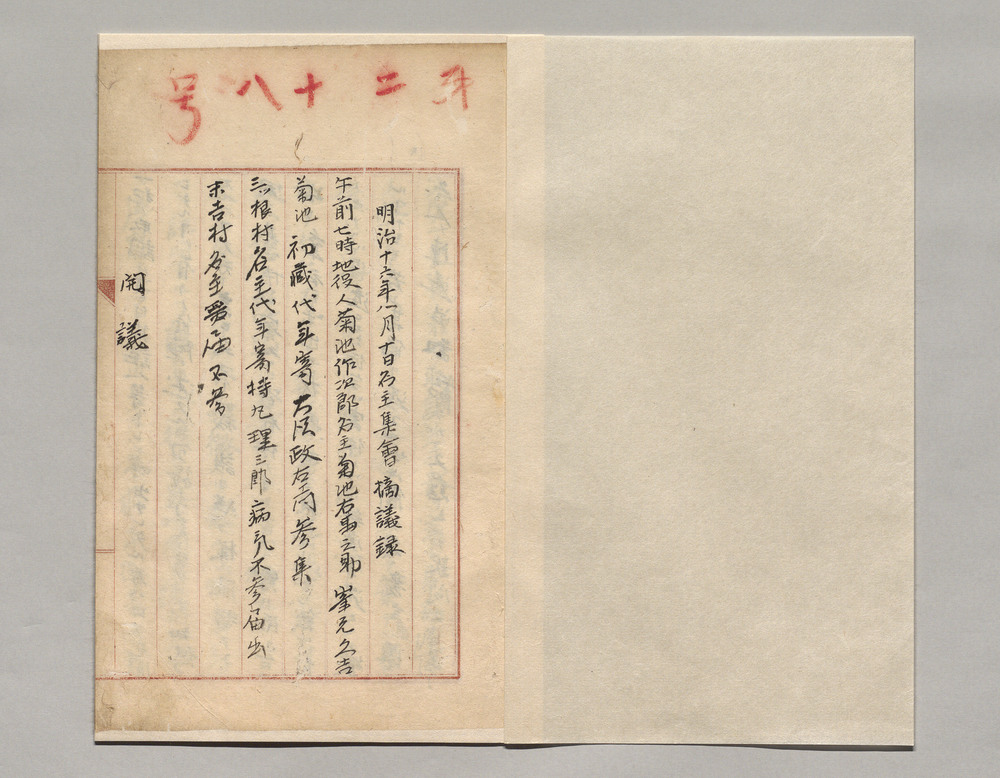 第二十八号
明治十六年八月十日名主集會摘議録
午前七時地役人菊池作次郎名主菊池右馬之助峯元久吉
菊池初蔵代年寄大沢政右衛門参集
三根村名主代年寄持丸理三郎病気不参届出
末吉村名主無届不参
開議